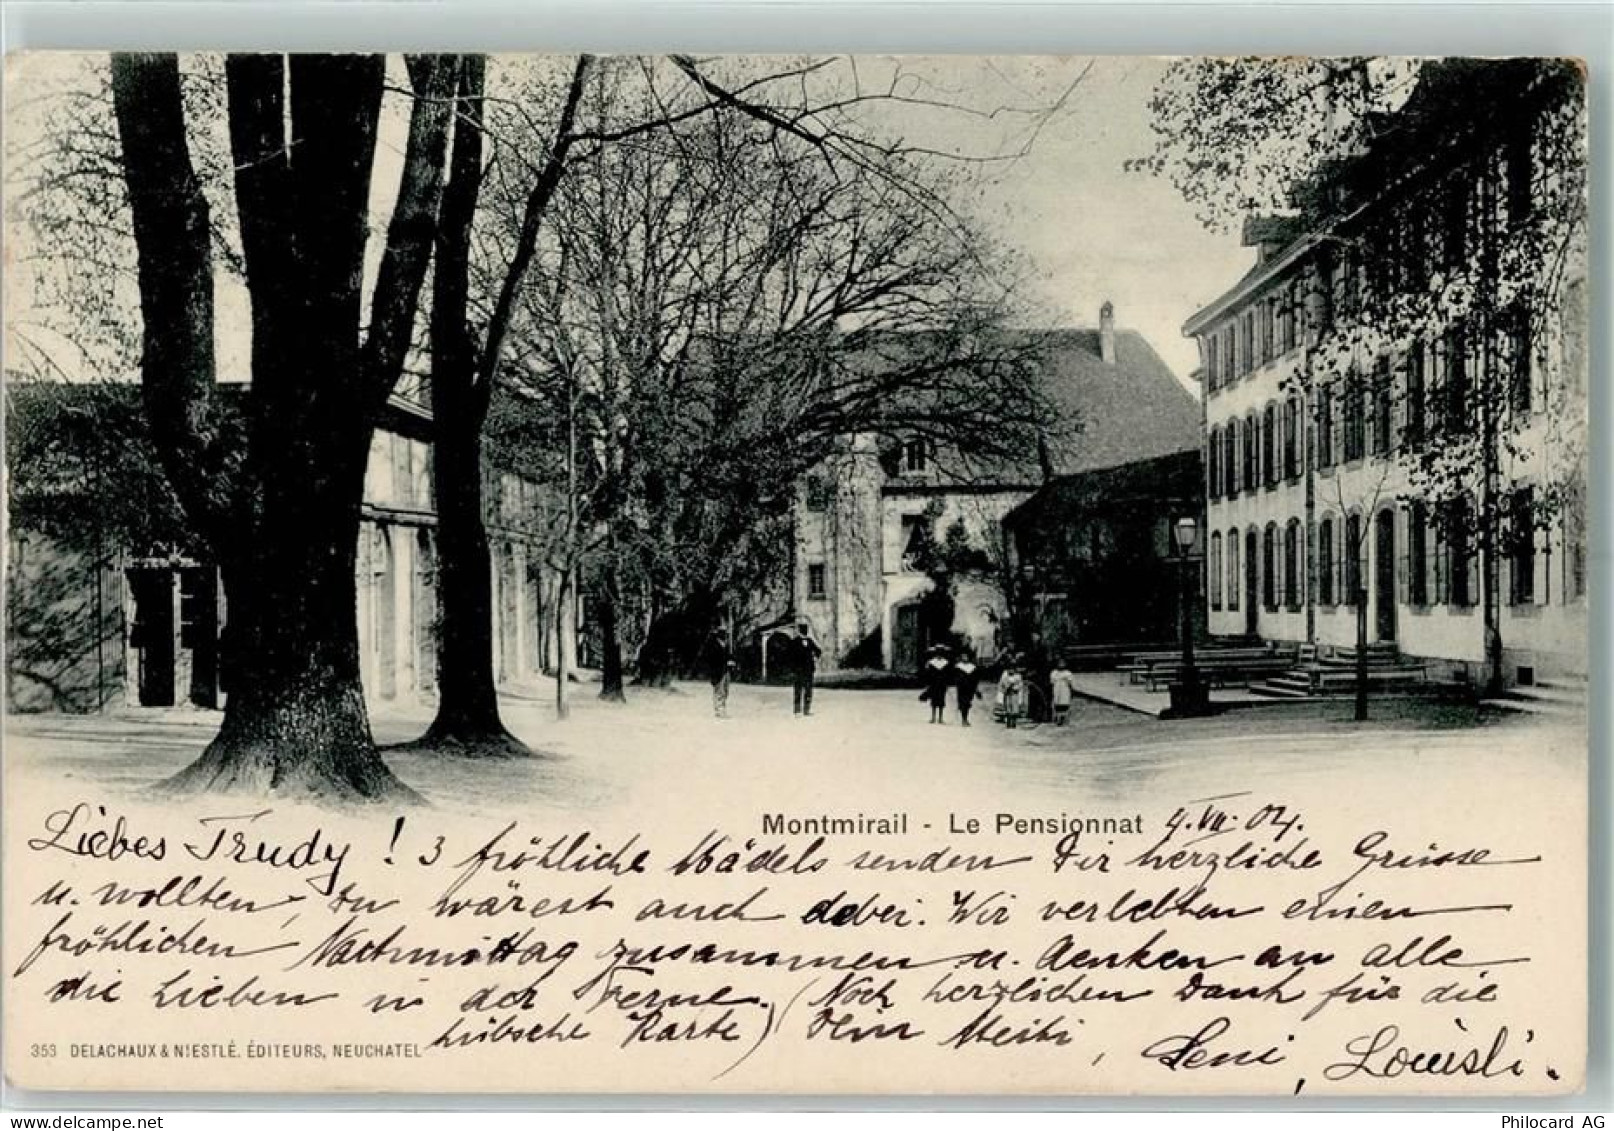 Montmirail - Le Pensionnat 4. VII. 04.
Liebes Trudy! 3 fröhliche Mädels senden Dir herzliche Grüsse
u. wollten, Du wärest auch dabei. Wir verlebten einen
fröhlichen Nachmittag zusammen u. denken an alle
die Lieben in der Ferne. (Noch herzlichen Dank für die
hübsche Karte) Dein Meiti, Leni, Louisli.
353 DELACHAUX & NIESTLÉ. ÉDITEURS, NEUCHATEL
Philocard AG